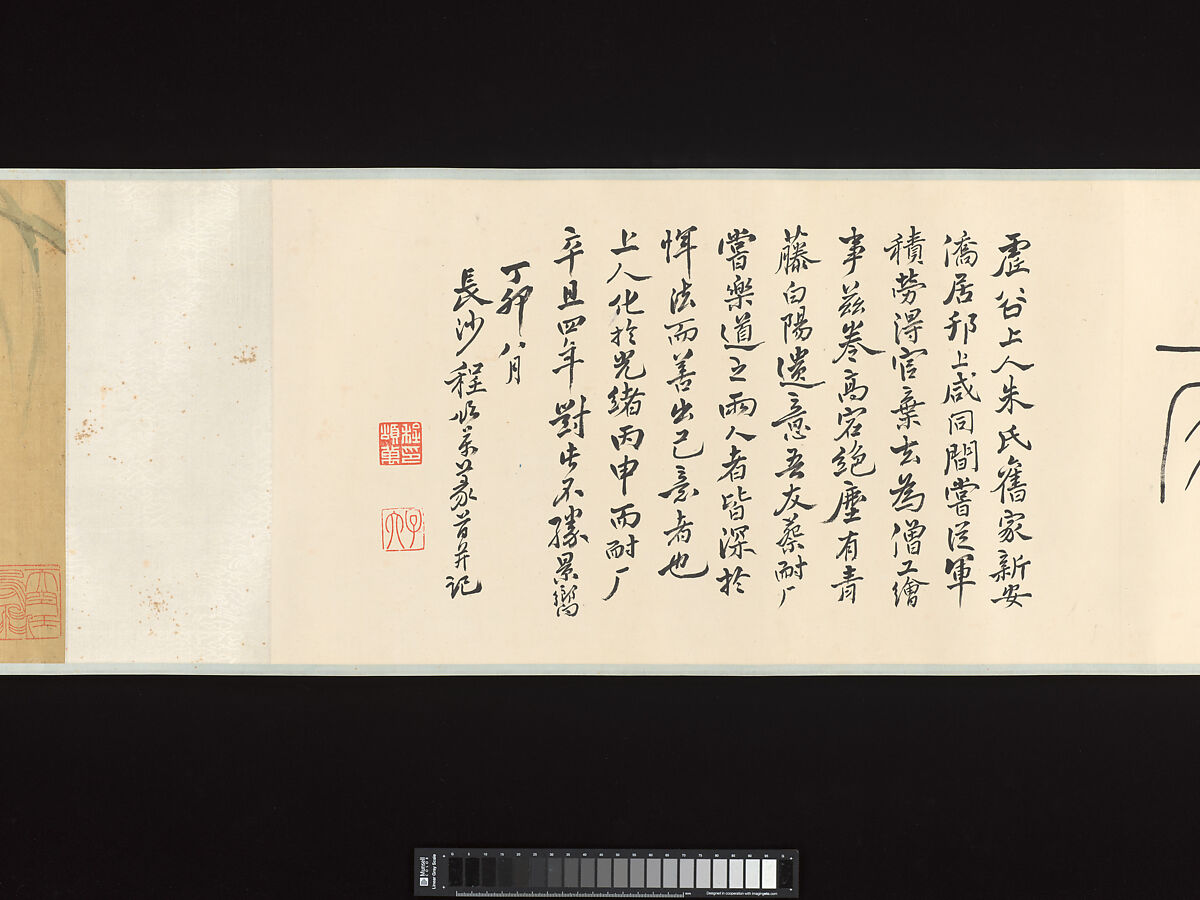 虛谷上人朱氏舊家新安
僑居邗上咸同間嘗從軍
積勞得官棄去為僧工繪
事茲卷高宕絕塵有青
藤白陽遺意吾友蔡耐厂
嘗樂道之兩人者皆深於
惲法而善出己意者也
上人化於光緒丙申而耐厂
卒且四年對此不勝景嚮
丁卯八月
長沙程頌萬篆首并記
程頌萬印